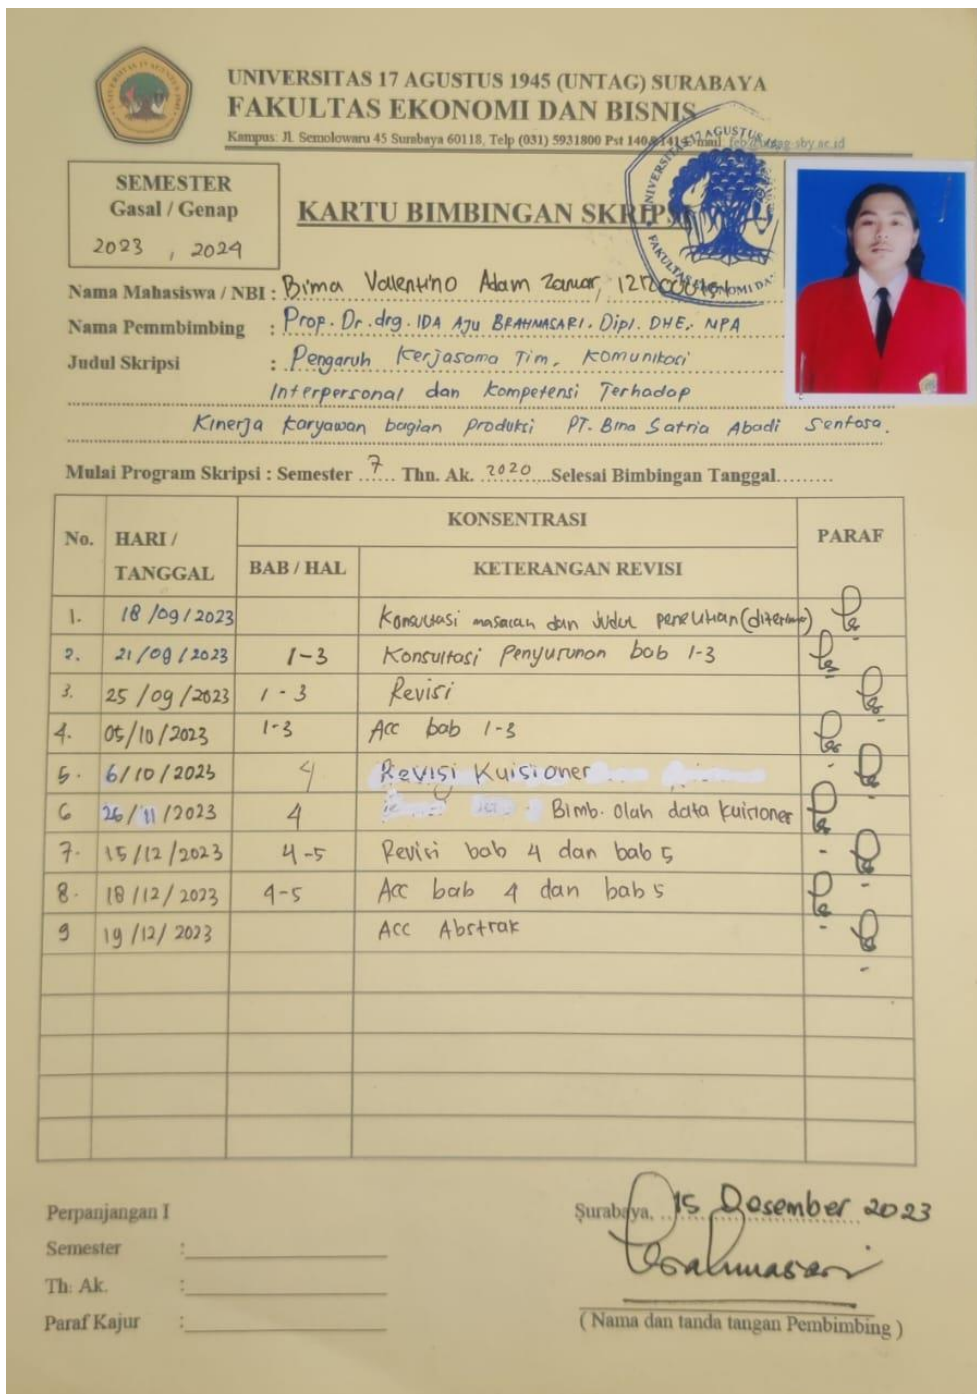 UNIVERSITAS 17 AGUSTUS 1945 (UNTAG) SURABAYA
FAKULTAS EKONOMI DAN BISNIS
Kampus: Jl. Semolowaru 45 Surabaya 60118, Telp (031) 5931800 Pst 140
SEMESTER
Gasal / Genap
2023 , 2024
KARTU BIMBINGAN SKRIPSI
Nama Mahasiswa / NBI : Bima Vallentino Adam Zanuar,
Nama Pemmbimbing : Prop. Dr. drg. IDA AJU BRAHMASARI. Dipl. DHE, MPA
Judul Skripsi : Pengaruh Kerjasama Tim, Komunikasi
Interpersonal dan Kompetensi Terhadap
Kinerja Karyawan bagian produksi PT. Bina Satria Abadi Sentosa.
Mulai Program Skripsi : Semester 7 Thn. Ak. 2020 Selesai Bimbingan Tanggal.........
No. HARI / TANGGAL KONSENTRASI PARAF
BAB / HAL KETERANGAN REVISI
1. 18/09/2023 Konsultasi masalah dan Judul penelitian (diterima)
2. 21/09/2023 1-3 Konsultasi Penyusunan bab 1-3
3. 25/09/2023 1-3 Revisi
4. 05/10/2023 1-3 Acc bab 1-3
5. 6/10/2023 4 Revisi Kuisioner
6 26/11/2023 4 Bimb. Olah data kuisioner
7. 15/12/2023 4-5 Revisi bab 4 dan bab 5
8. 18/12/2023 4-5 Acc bab 4 dan bab 5
9 19/12/2023 Acc Abstrak
Perpanjangan I
Semester :
Th. Ak. :
Paraf Kajur :
Surabaya, 15 Desember 2023
Brahmasari
( Nama dan tanda tangan Pembimbing )